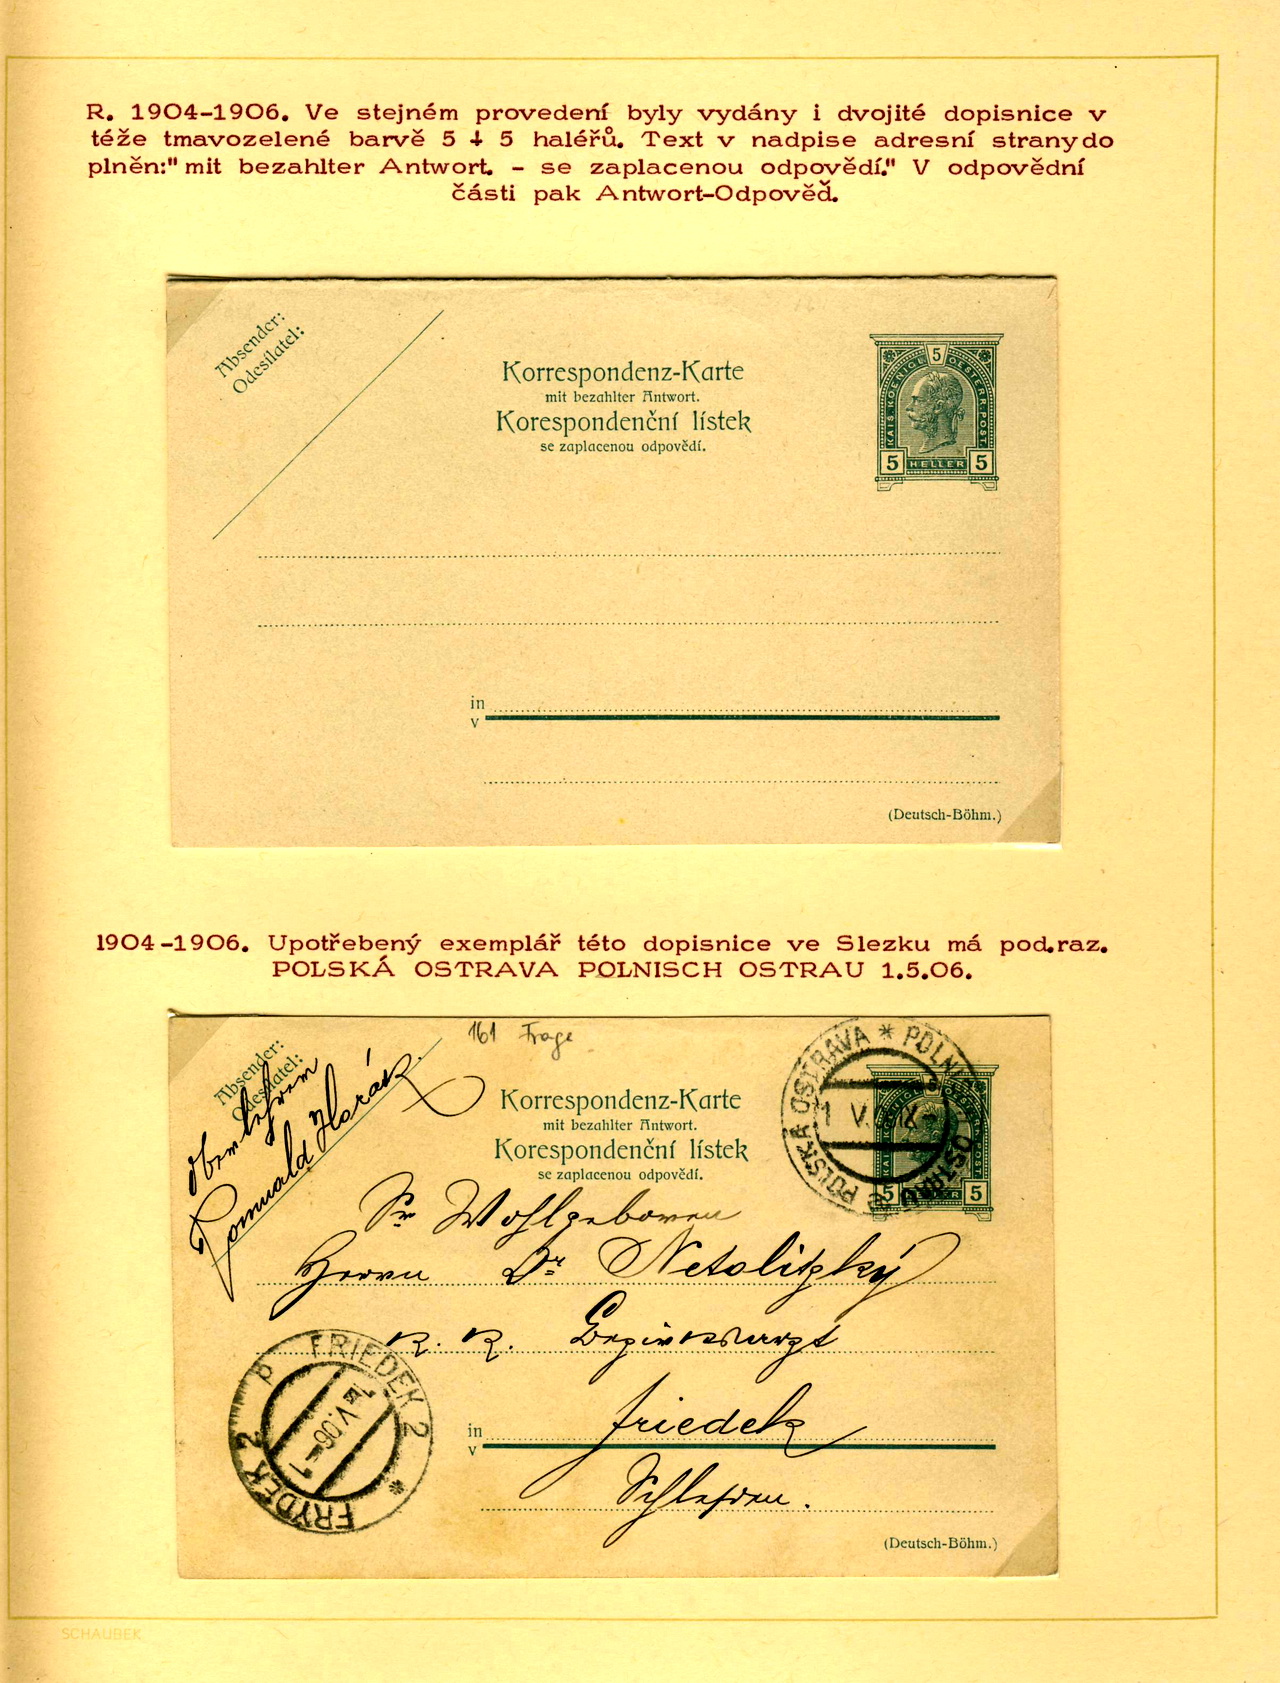 R. 1904-1906. Ve stejném provedení byly vydány i dvojité dopisnice v
téže tmavozelené barvě 5 + 5 haléřů. Text v nadpise adresní strany do
plněn:" mit bezahlter Antwort. - se zaplacenou odpovědí." V odpovědní
části pak Antwort-Odpověď.
Absender:
Odesílatel:
Korrespondenz-Karte
mit bezahlter Antwort.
Korespondenční lístek
se zaplacenou odpovědí.
5
KAIS. KOENIGL. OESTERR. POST.
5 HELLER 5
in
v
(Deutsch-Böhm.)
1904-1906. Upotřebený exemplář této dopisnice ve Slezku má pod.raz.
POLSKÁ OSTRAVA POLNISCH OSTRAU 1.5.06.
161 Frage
Absender:
Odesílatel:
Oberlehrer
Romuald Horák
Korrespondenz-Karte
mit bezahlter Antwort.
Korespondenční lístek
se zaplacenou odpovědí.
POLSKÁ OSTRAVA * POLNI OSTRAU
1 V. IX
5 5
Sr Wohlgeboren
Herrn Dr Netolitzký
K. K. Bezirksarzt
in Friedek
v
Schlesien.
FRIEDEK 2 * FRYDEK 2 P
1 V. 06
(Deutsch-Böhm.)
SCHAUBEK